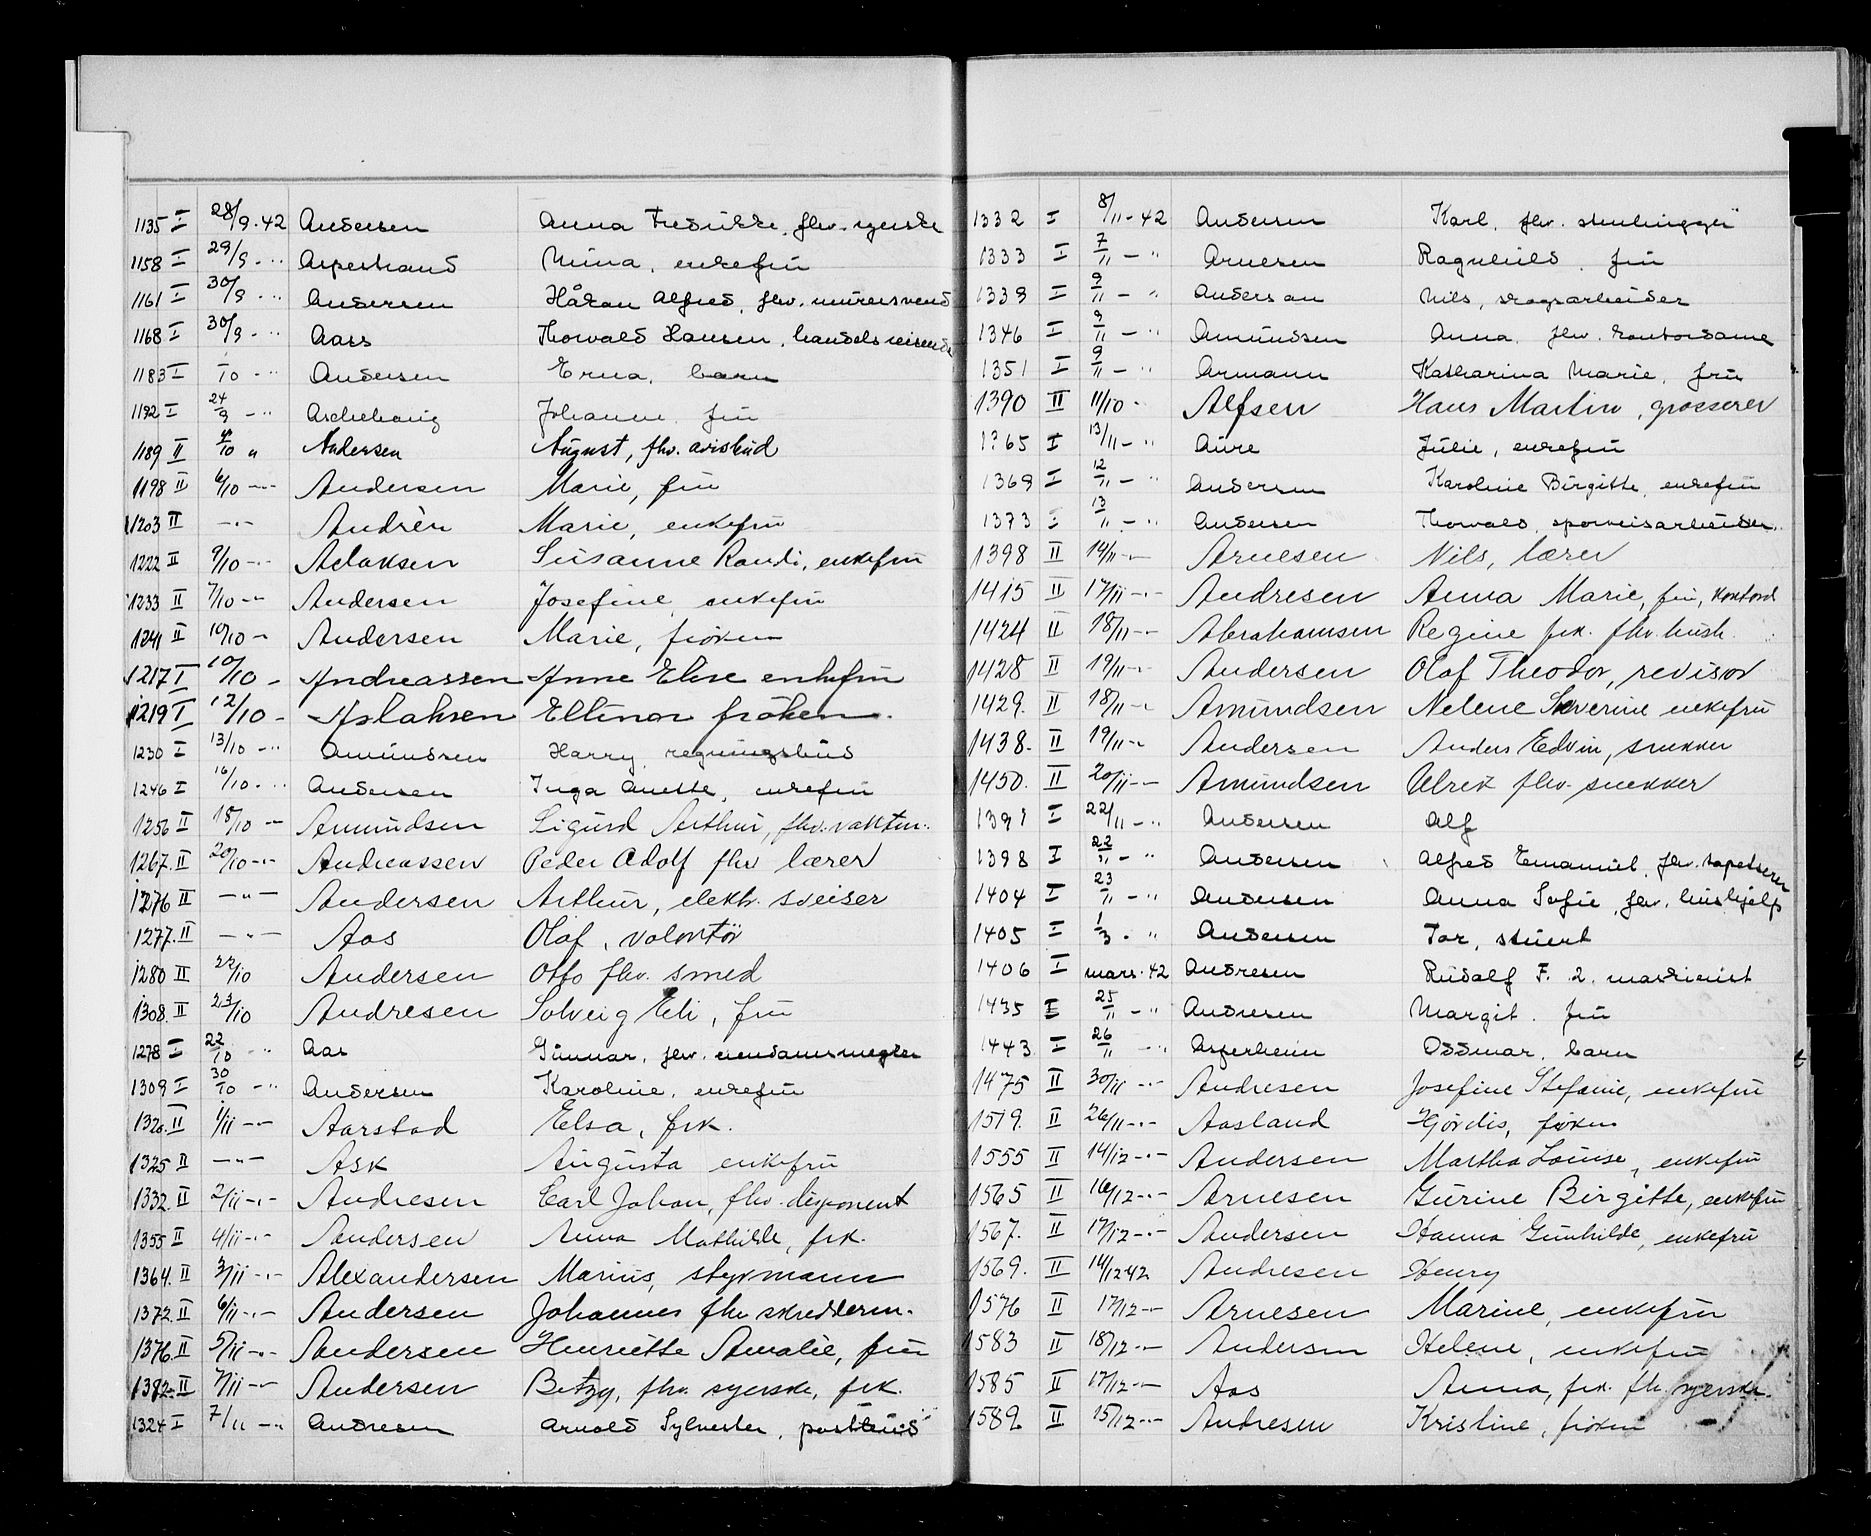 1135 I 28/9-42 Andersen Anna Fredrikke, fhv. syerske
1158 I 29/9-" Asperhaud Mina, enkefru
1161 I 30/9-" Andersen Håkon Alfred, fhv. murersvend
1168 I 30/9-" Aass Thorvald Hansen, handelsreisende
1183 I /10-" Andersen Erna, barn
1192 I 24/9-" Aschehoug Johanne, fru
1189 II /10 " Andersen August, fhv. avisbud
1198 II 6/10-"- Andersen Marie, fru
1203 II -"- Andrèn Marie, enkefru
1222 II 9/10-"- Aslaksen Susanne Randi, enkefru
1233 II 7/10-"- Andersen Josefine, enkefru
1241 II 10/10- Andersen Marie, frøken
1217 I 10/10- Andreassen Anne Elise enkefru
1219 I 12/10- Aslaksen Ellinor frøken.
1230 I 13/10-" Amundsen Harry, regningsbud
1246 I 16/10-" Andersen Inga Anette, enkefru
1256 II 18/10-"- Amundsen Sigurd Arthur, fhv. vaktm.
1267. II 20/10-"- Andreassen Peder Adolf fhv lærer
1276 II -"- Andersen Arthur, elektr. sveiser
1277. II -"- Aas Olaf, volontør
1280 II 22/10 Andersen Otto fhv. smed
1308. II 23/10 Andresen Solveig Eli, fru
1278 I 22/10-" Aas Gunnar, fhv. eiendomsmegler
1309 I 30/10-" Andersen Karoline, enkefru
1320. II 1/11-"- Aarstad Elsa, frk.
1325 II -"- Ask Augusta enkefru
1332. II 2/11-"- Andresen Carl Johan, fhv. disponent
1355 II 4/11-"- Andersen Anna Mathilde, frk.
1364. II 3/11-"- Alexandersen Marius, styrmann
1372. II 6/11-"- Andersen Johannes fhv skredderm.
1376. II 5/11-"- Andersen Henriette Amalie, fru
1382. II 7/11-"- Andersen Betzy, fhv. syerske, frk.
1324 I 7/11-" Andresen Arnold Sylvester, postbud
1332 I 8/11-42 Andersen Karl, fhv. stenhugger
1333 I 7/11-" Arnesen Ragnhild, fru
1339 I 9/11-" Anderson Nils, skogsarbeider
1346 I 9/11-" Amundsen Anna, fhv. kontordame
1351 I 9/11-" Armann Katharina Marie, fru
1390 II 11/10- Alfsen Hans Martin, grosserer
1365 I 13/11-" Aure Julie, enkefru
1369 I 12/11-" Andersen Karoline Birgitte, enkefru
1373 I 13/11-" Andersen Thorvald, sporveisarbeider.
1398 II 14/11-"- Arnesen Nils, lærer
1415 II 17/11-"- Andresen Anna Marie, fru, kontord
1424 II 18/11-"- Abrahamsen Regine frk. fhv. hush.
1428 II 19/11-"- Andersen Olaf Theodor, revisor
1429. II 18/11-"- Amundsen Nelene Severine enkefru
1438. II 19/11-"- Andersen Anders Edvin, snekker
1450. II 20/11-"- Amundsen Ulrik fhv. snekker
1391 I 22/11-" Andersen Alf
1398 I 22/11-" Andersen Alfred Emanuel, fhv. tapetserer
1404 I 23/11-" Andersen Anna Sofie, fhv. hushjelp
1405 I 1/3-" Andersen Tor, stuert
1406 I mars-42 Andresen Rudolf F. 2. maskinist
1435 I 25/11-" Andresen Margit, fru
1443 I 26/11-" Asperheim Oddmar, barn
1475 II 30/11-"- Andresen Josefine Stefanie, enkefru
1519. II 26/11-"- Aasland Hjørdis, frøken
1555 II 14/12-"- Andersen Martha Louise, enkefru
1565 II 16/12-"- Arnesen Gurine Birgitte, enkefru
1567. II 17/12-"- Andersen Hanna Gunhilde, enkefru
1569. II 14/12 42 Andresen Henry
1576 II 17/12-"- Arnesen Marine, enkefru
1583 II 18/12-"- Andersen Helene, enkefru
1585 II 17/12-"- Aas Anna, frk. fhv. syerske.
1589 II 15/12-"- Andresen Kristine, frøken